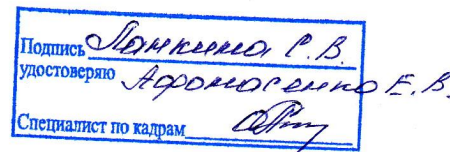 Подпись Панкина С. В.
удостоверяю Афонасенко Е. В.
Специалист по кадрам